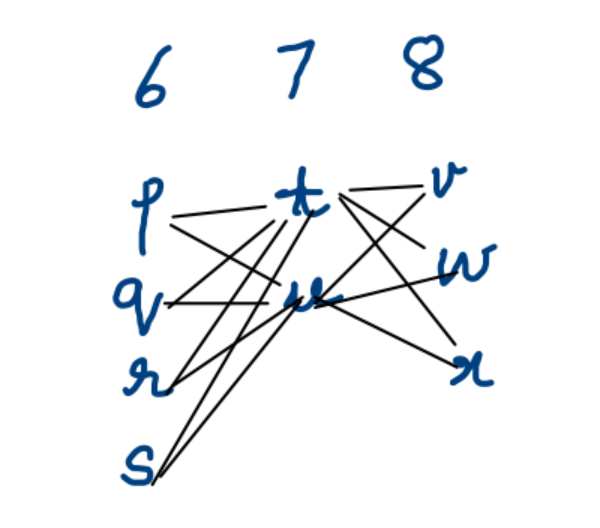 6 7 8
p t v
q u w
r x
s